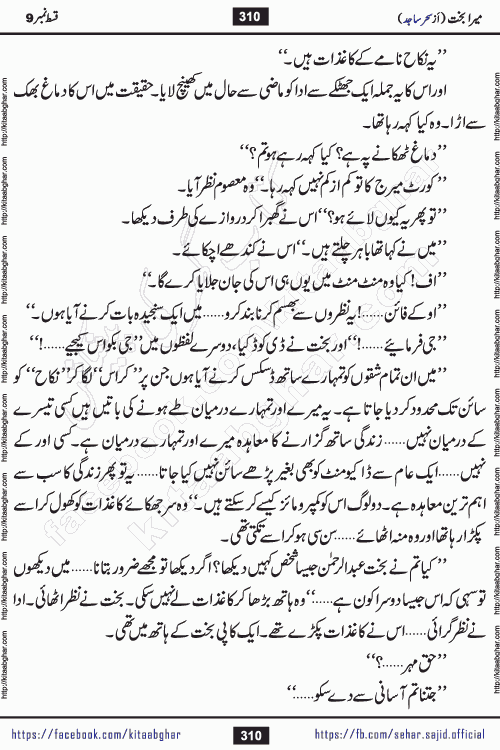 میرا بخت (از سحر ساجد)
310
قسط نمبر 9
’’یہ نکاح نامے کے کاغذات ہیں۔‘‘
اور اس کا یہ جملہ ایک جھٹکے سے ادا کو ماضی سے حال میں کھینچ لایا۔ حقیقت میں اس کا دماغ بھک
سے اڑا۔ وہ کیا کہہ رہا تھا۔
’’دماغ ٹھکانے پہ ہے؟ کیا کہہ رہے ہو تم؟‘‘
’’کورٹ میرج کا تو کم از کم نہیں کہہ رہا۔‘‘ وہ معصوم نظر آیا۔
’’تو پھر یہ کیوں لائے ہو؟‘‘ اس نے گھبرا کر دروازے کی طرف دیکھا۔
’’میں نے کہا تھا باہر چلتے ہیں۔‘‘ اس نے کندھے اچکائے۔
’’اف! کیا وہ منٹ منٹ میں یوں ہی اس کی جان جلایا کرے گا۔‘‘
’’اوکے فائن......! یہ نظروں سے بھسم کرنا بند کرو......میں ایک سنجیدہ بات کرنے آیا ہوں۔‘‘
’’جی فرمائیے......!‘‘ اور بخت نے ڈی کوڈ کیا، دوسرے لفظوں میں ’’جی بکواس کیجیے......!‘‘
’’میں ان تمام شقوں کو تمہارے ساتھ ڈسکس کرنے آیا ہوں جن پر ’’کراس‘‘ لگا کر ’’نکاح‘‘ کو
سائن تک محدود کر دیا جاتا ہے۔ یہ میرے اور تمہارے درمیان طے ہونے کی باتیں ہیں کسی تیسرے
کے درمیان نہیں......زندگی ساتھ گزارنے کا معاہدہ میرے اور تمہارے درمیان ہے۔ کسی اور کے
نہیں......ایک عام سے ڈاکیومنٹ کو بھی بغیر پڑھے سائن نہیں کیا جاتا......یہ تو پھر زندگی کا سب سے
اہم ترین معاہدہ ہے۔ دو لوگ اس کو کمپرومائز کیسے کر سکتے ہیں۔‘‘ وہ سر جھکائے کاغذات کو کھول کر اسے
پکڑا رہا تھا اور وہ منہ اٹھائے......سن سی ہو کر اسے تکتی تھی۔
’’کیا تم نے بخت عبدالرحمٰن جیسا شخص کہیں دیکھا؟ اگر دیکھا تو مجھے ضرور بتانا......میں دیکھوں
تو سہی کہ اس جیسا دوسرا کون ہے......‘‘ وہ ہاتھ بڑھا کر کاغذات لے نہیں سکی۔ بخت نے نظر اٹھائی۔ ادا
نے نظر گرائی......اس نے کاغذات پکڑے تھے۔ ایک کاپی بخت کے ہاتھ میں تھی۔
’’حق مہر......؟‘‘
’’جتنا تم آسانی سے دے سکو......‘‘
https://facebook.com/kitaabghar
310
https://fb.com/sehar.sajid.official
http://kitaabghar.com